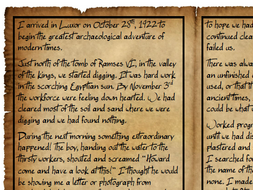 I arrived in Luxor on October 28th, 1922 to
begin the greatest archaeological adventure of
modern times.
Just north of the tomb of Ramses VI, in the valley
of the kings, we started digging. It was hard work
in the scorching Egyptian sun. By November 3rd
the workforce were feeling down hearted. We had
cleared most of the soil and sand where we were
digging and we had found nothing.
During the next morning something extraordinary
happened! The boy, handing out the water to the
thirsty workers, shouted and screamed "Howard
come and have a look at this!" I thought he would
be showing me a letter or photograph from
to hope we had
continued clea
failed us.
There was alwa
an unfinished
used, or that t
ancient times,
could be wait
Worked progre
until we had de
plastered and
I searched fo
the name of t
none. I made